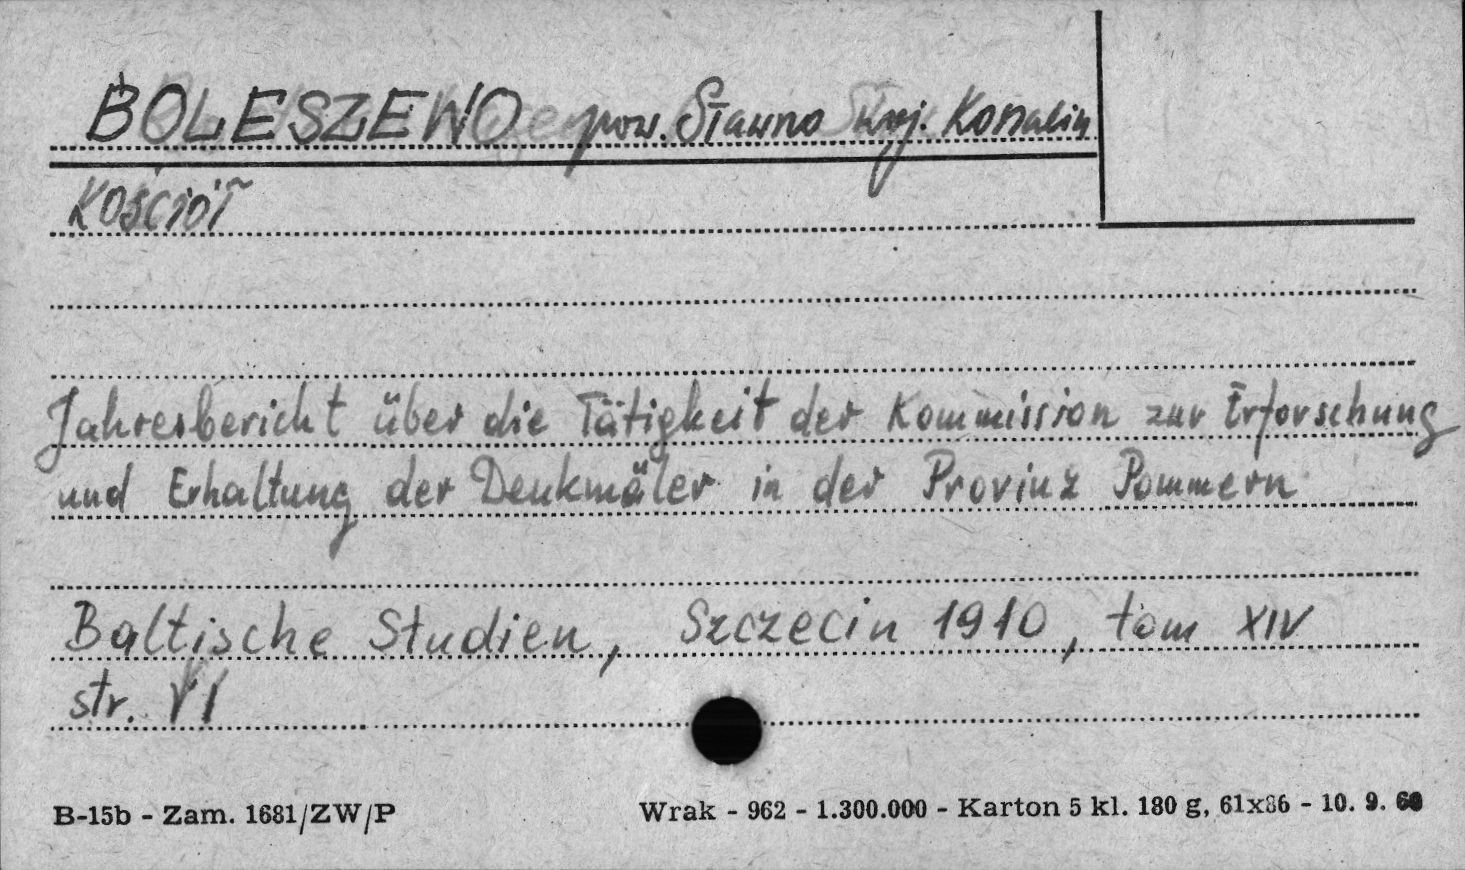 BOLESZEWO pow. Sławno woj. Koszalin
KOŚCIÓŁ
Jahresbericht über die Tätigkeit der Kommission zur Erforschung
und Erhaltung der Denkmäler in der Provinz Pommern
Baltische Studien, Szczecin 1910, tom XIV
str. VI
B-15b - Zam. 1681/ZW/P
Wrak - 962 - 1.300.000 - Karton 5 kl. 180 g, 61x86 - 10. 9.